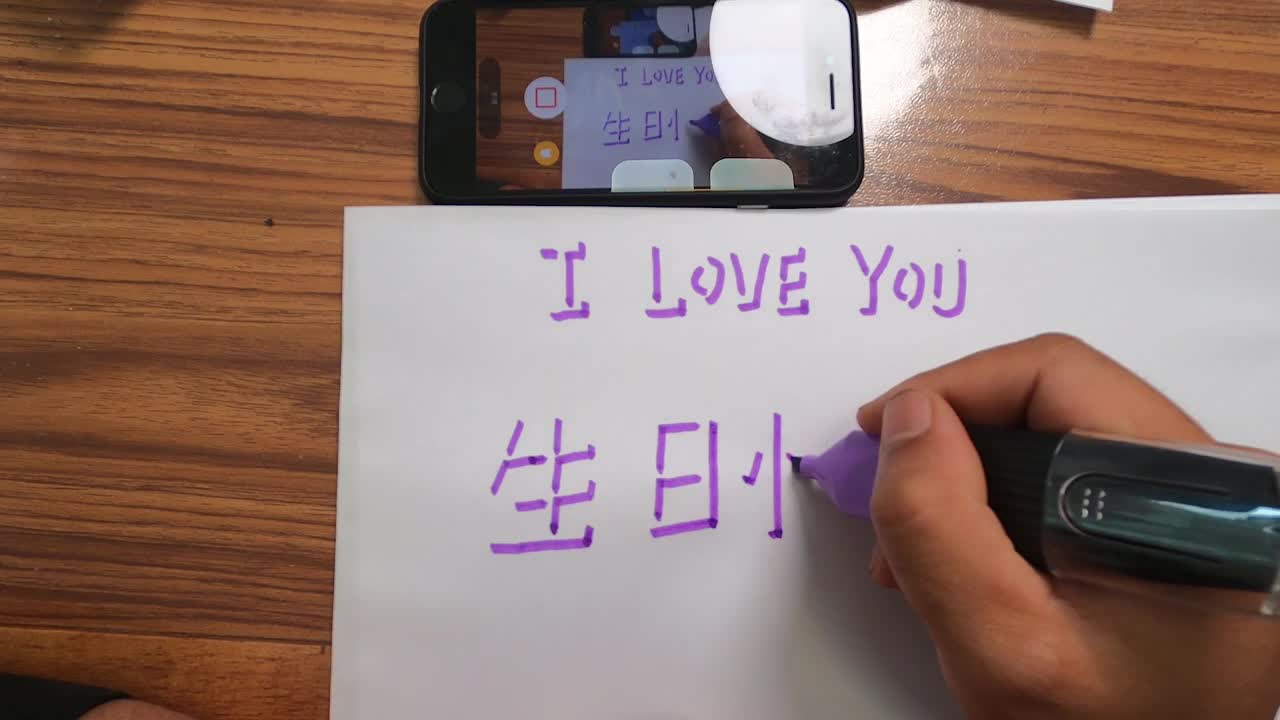 I LOVE YOU
生日忄